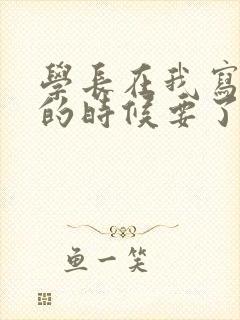 學長在我寫
的時候要了
魚一笑